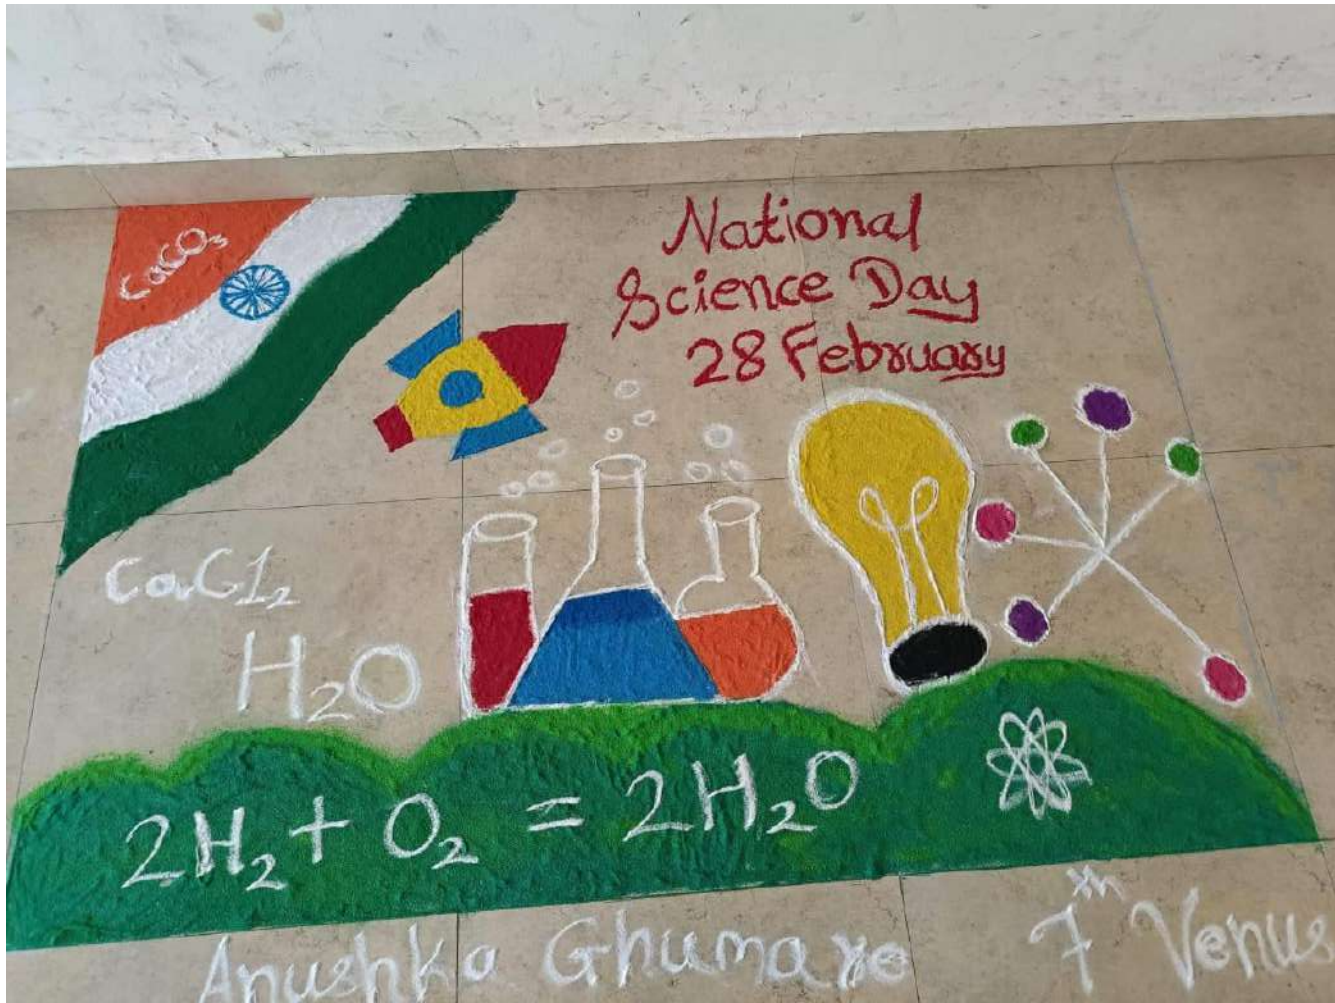 National
Science Day
28 February
CaCO₃
CaCl₂
H₂O
2H₂ + O₂ = 2H₂O
Anushka Ghumare 7ᵗʰ Venus